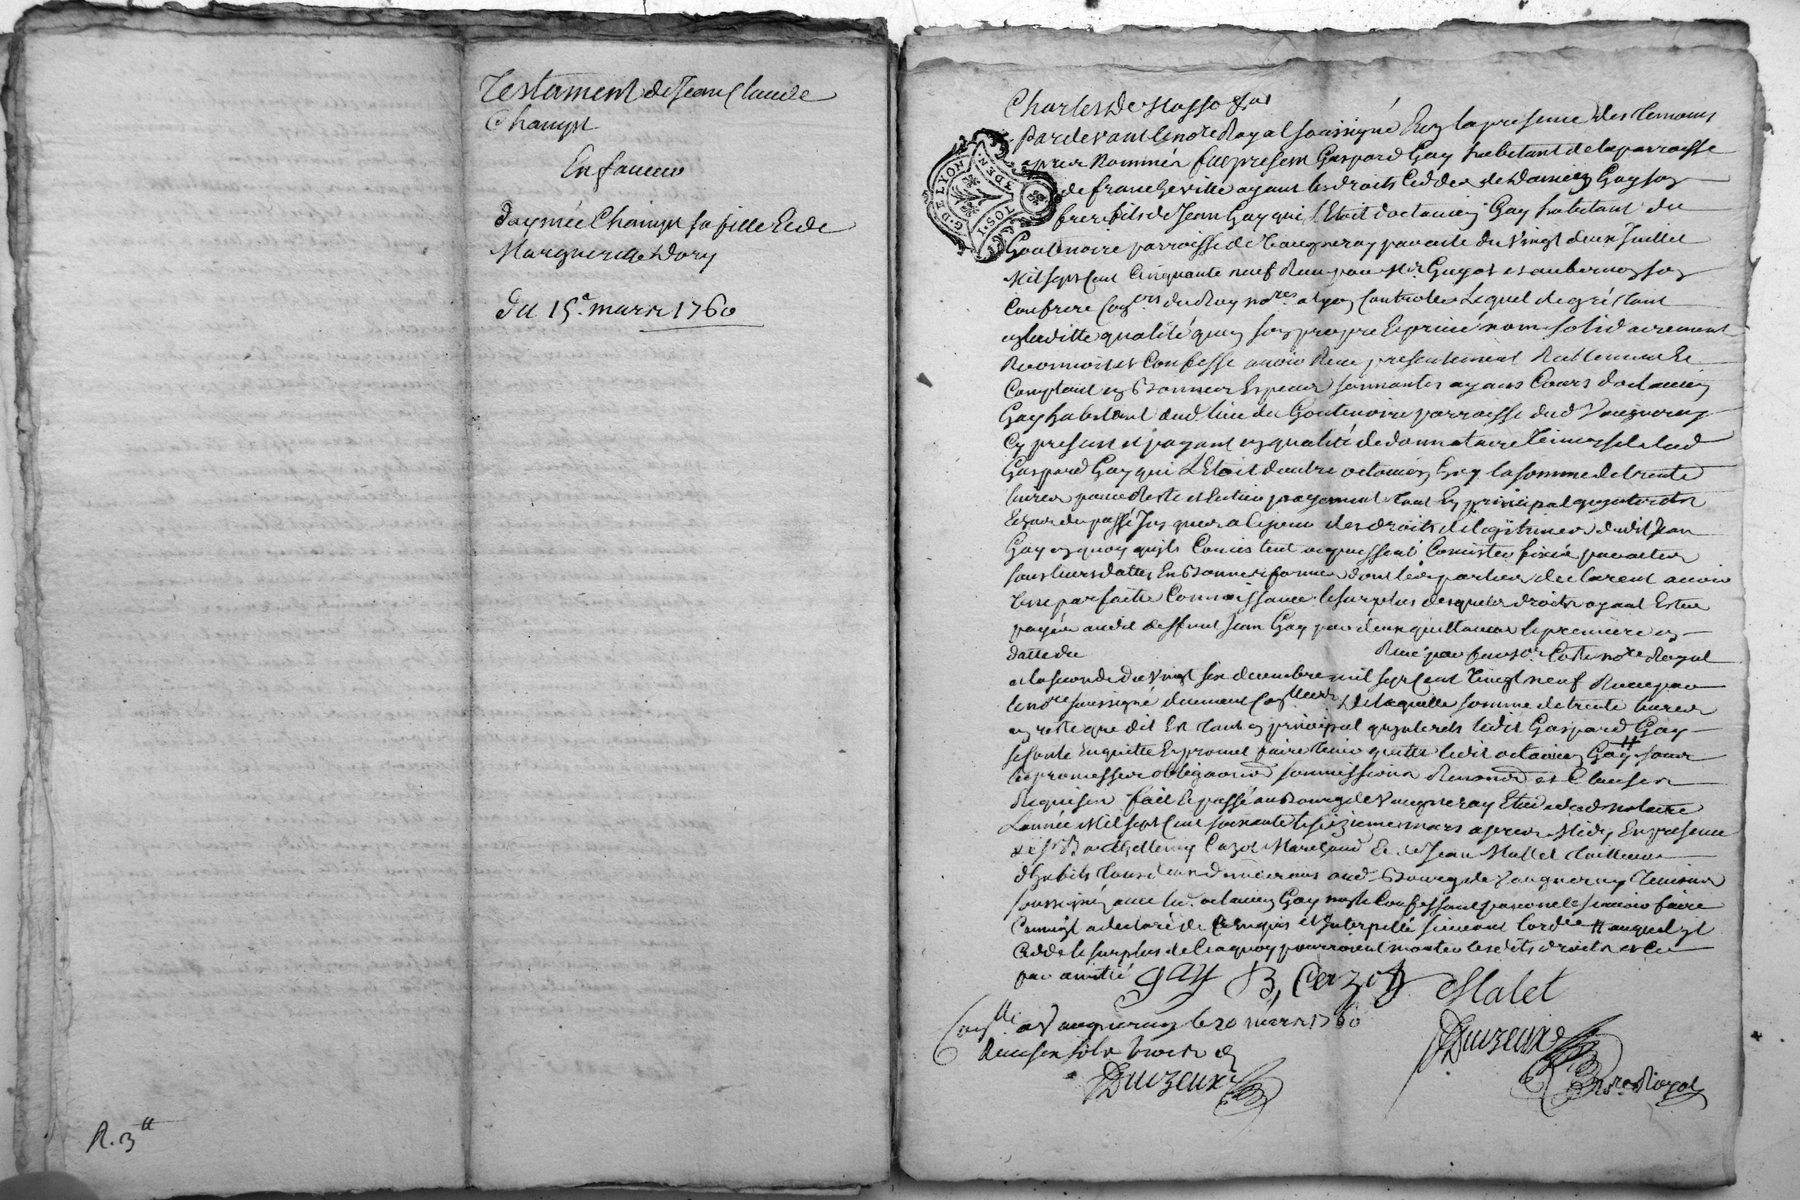 Testament de Jean Claude
Champt
En faveur
daymée Champt sa fille et de
Marguerite Dory
du 15e. mars 1760
R. 3 tt
Pardevant le not.re Royal soussigné En la presence des temoins
apres Nommés fut present Gaspard Gay habitant de la parroisse
de francheville ayant les droits ceddes de Damien Gay son
frere fils de Jean Gay qui l'Etoit doctavien Gay habitant du
Goutenoire parroisse de Vaugneray par acte du vingt deux Juillet
Mil sept Cent Cinquante neuf Recu par M.e Guyot et aubernon son
Confrere Con.ers du Roy no.res a lyon Controllé Lequel de gré tant
en laditte qualité quen son propre Et privé nom solidairement
Reconnoit et Confesse avoir Recu presentement Reellement Et
Comptant en Bonnes Especes sonnantes ayant Cours doctavien
Gay habitant aud. lieu du Goutenoire parroisse dud Vaugneray
Cy present et payant en qualité de donnataire Universel dud
Gaspard Gay qui L'Etoit dautre octavien Gay la somme de trente
livres pour Reste et Entier payement tant En principal quinterets
Echus du passé Jusques a ce jour des droits de legitimes dudit Jean
Gay en quoy quils Consistent et puissent Consister fixés par actes
sous leurs dattes En Bonnes formes dont les parties declarent avoir
Une parfaite Connoissance le surplus desquels droits ayant Esté
payés audit deffunt Jean Gay par deux quittances la premiere en
datte du Recu par feu M.e Coste no.re Royal
et la seconde du vingt six decembre mil sept Cent Vingt neuf Recue par
le no.re soussigné duement Con.llées De laquelle somme de trente livres
en reste que dit Est tant en principal quinterets ledit Gaspard Gay
se Contente En quitte Et promet faire tenir quitte ledit octavien Gay # sous
les promesses obligations soumissions Renonc.ons et Clauses
Requises fait Et passé au Bourg de Vaugneray Etude dud Notaire
L'année Mil sept Cent soixante le seizieme mars apres Midy En presence
de s.r Barthellemy Cazot Marchand Et de Jean Mallet tailleur
dhabits tous deux demeurans aud. Bourg de Vaugneray temoins
soussignés avec led. octavien Gay non le Confessant pour ne le scavoir faire
Comme il a declaré de ce Enquis et Interpellé suivant lord.ce # auquel il
Cedde le surplus de ce a quoy pourroient monter lesdits droits et ce
par amitié Gay B, Cazot Malet
Con.llé a Vaugneray le 20 mars 1760
Recu six sols trois d.
Duizeux
Duizeux
no.re Royal